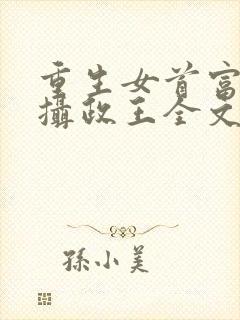 重生女首富
攝政王全文
孫小美